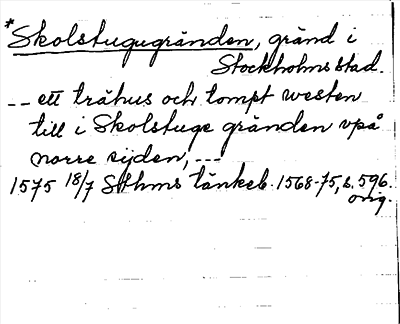 *Skolstugugränden, gränd i
Stockholms stad.
-- ett trähus och tompt westen
till i Skolstuge gränden vpå
norre sijden, ---
1575 18/7 Sthms tänkeb. 1568-75, s. 596.
orig.